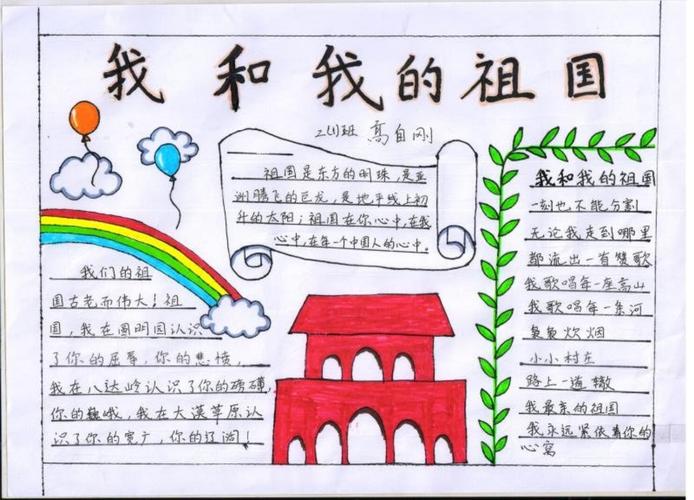 我和我的祖国
二(1)班 高自刚
祖国是东方的明珠,是亚
洲腾飞的巨龙,是地平线上初
升的太阳;祖国在你心中,在我
心中,在每一个中国人的心中。
我们的祖
国古老而伟大!祖
国,我在圆明园认识
了你的屈辱,你的悲愤,
我在八达岭认识了你的磅礴,
你的巍峨,我在大漠草原认
识了你的宽广,你的辽阔!
我和我的祖国
一刻也不能分割
无论我走到哪里
都流出一首赞歌
我歌唱每一座高山
我歌唱每一条河
袅袅炊烟
小小村庄
路上一道辙
我最亲的祖国
我永远紧依着你的
心窝